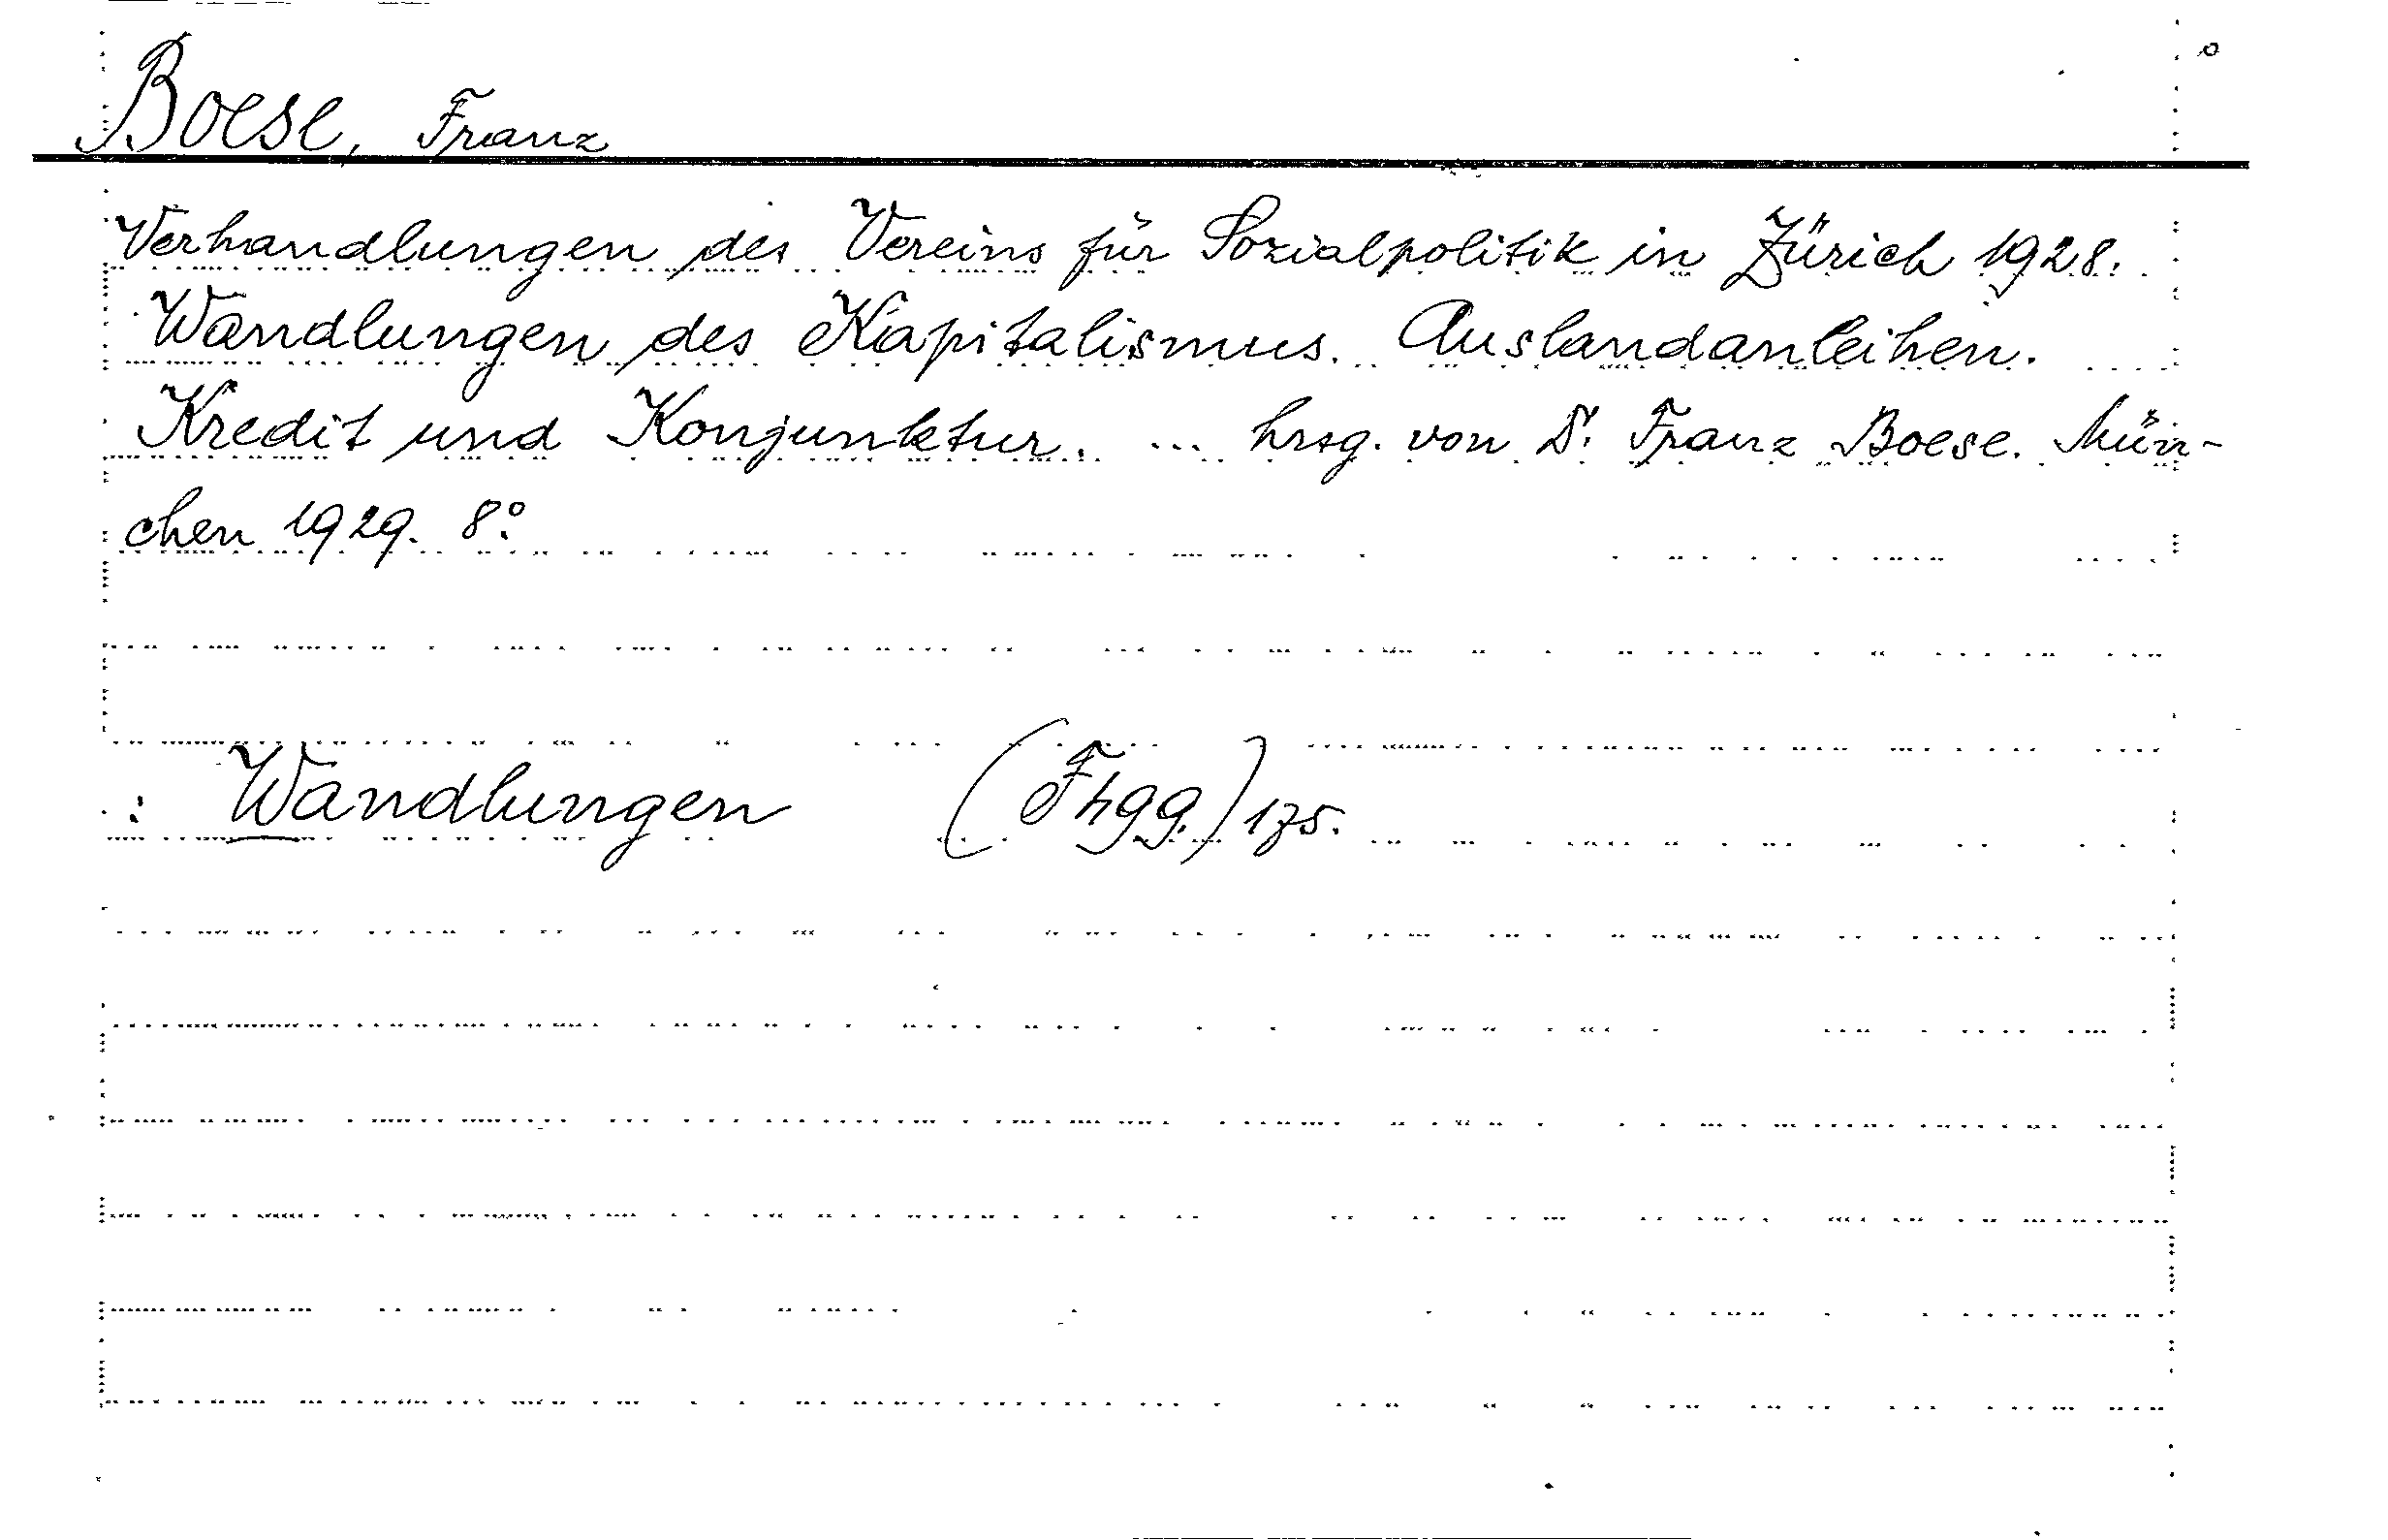 Boese, Franz
Verhandlungen des Vereins für Sozialpolitik in Zürich 1928.
Wandlungen des Kapitalismus. Auslandanleihen.
Kredit und Konjunktur. ... hrsg. von Dr. Franz Boese. Mün-
chen 1929. 8°.
: Wandlungen (Fhgg.) 175.